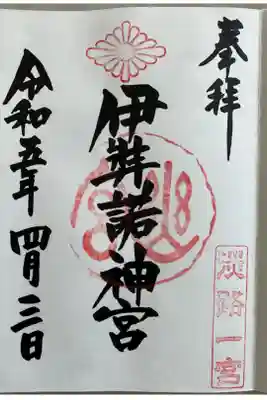 奉拝
淡路一宮
伊弉諾神宮
令和五年四月三日